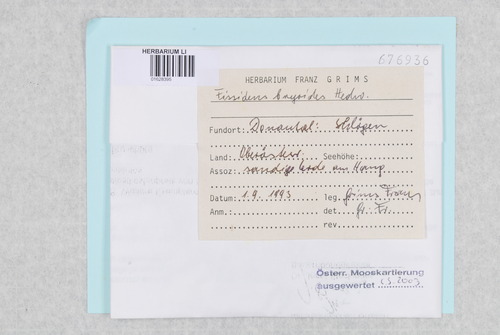 HERBARIUM LI
676936
HERBARIUM FRANZ GRIMS
Fissidens bryoides Hedw.
Fundort: Donautal: Schlögen
Land: Oberösterr. Seehöhe:
Assoz: sandige Erde am Hang
Datum: 1.9.1993 leg. Grims Franz
Anm.: det. Gr. Fr.
rev.
Österr. Mooskartierung
ausgewertet 2003